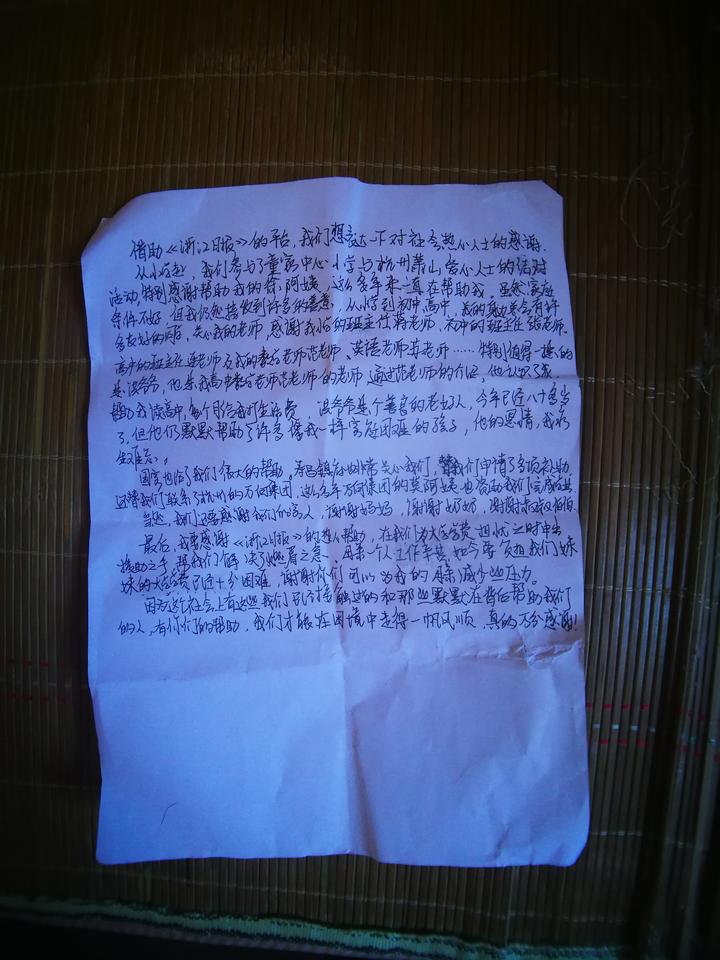 借助《浙江日报》的平台,我们想表达一下对社会热心人士的感谢.
从小时起,我们参与了童家中心小学与杭州萧山爱心人士的结对
活动,特别感谢帮助我的徐阿姨,这么多年来一直在帮助我,虽然家庭
条件不好,但我仍然接收到许多的善意,从小学到初中,高中,我的身边总会有许
多友好的同学,关心我的老师,感谢我小学的班主任蒋老师,初中的班主任张老师.
高中的班主任 老师及我的数学老师范老师、英语老师姜老师……特别值得一提的
是 爷爷,他是我高中数学老师范老师的老师,通过范老师的介绍,他认识了我
帮助我读高中,每个月给我打生活费. 爷爷是个善良的老好人,今年已经八十多岁
了,但他仍默默帮助了许多像我一样家庭困难的孩子,他的恩情,我永
生难忘。
国家也给了我们很大的帮助。 镇 非常关心我们,替我们申请了各项补助,
还替我们联系了杭州的万向集团,这么多年万向集团的莫阿姨也资助我们完成学业.
当然,我们还要感谢我们的家人,谢谢妈妈,谢谢奶奶,谢谢叔叔伯伯.
最后,我要感谢《浙江日报》的热心帮助,在我们为大学学费担忧之时伸出
援助之手,帮我们解决了燃眉之急.母亲一个人工作辛苦,如今要负担我们姊
妹的大学学费已是十分困难,谢谢你们可以为我的母亲减少些压力。
因为这社会上有这些我们已经接触过的和那些默默在背后帮助我们
的人,有你们的帮助,我们才能在困境中走得一帆风顺,真的万分感谢!